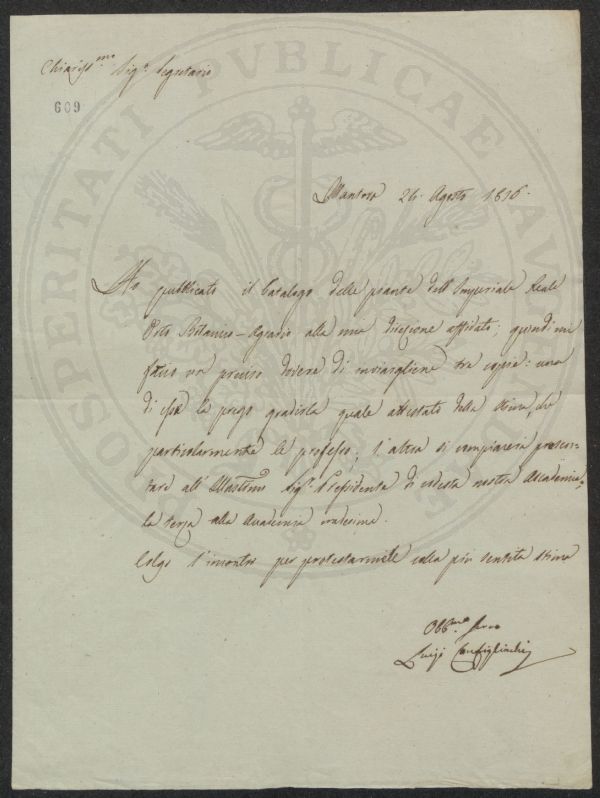 Chiariss.mo Sig.r Segretario
609
Mantova 26. Agosto 1816.
Ho pubblicato il Catalogo delle piante dell'Imperiale Reale
Orto Botanico-Agrario alla mia direzione affidato; quindi mi
faccio un preciso dovere di inviargliene tre copie: una
di esse la prego gradirla quale attestato della stima, che
particolarmente le professo; l'altra si compiacerà presen-
tare all' Illustrissimo Sig.r Presidente di codesta nostra Accademia;
la terza alla Accademia medesima.
Colgo l'incontro per protestarmele colla più sentita stima
Obb.mo Servo
Luigi Configliachi
PROSPERITATI PVBLICAE